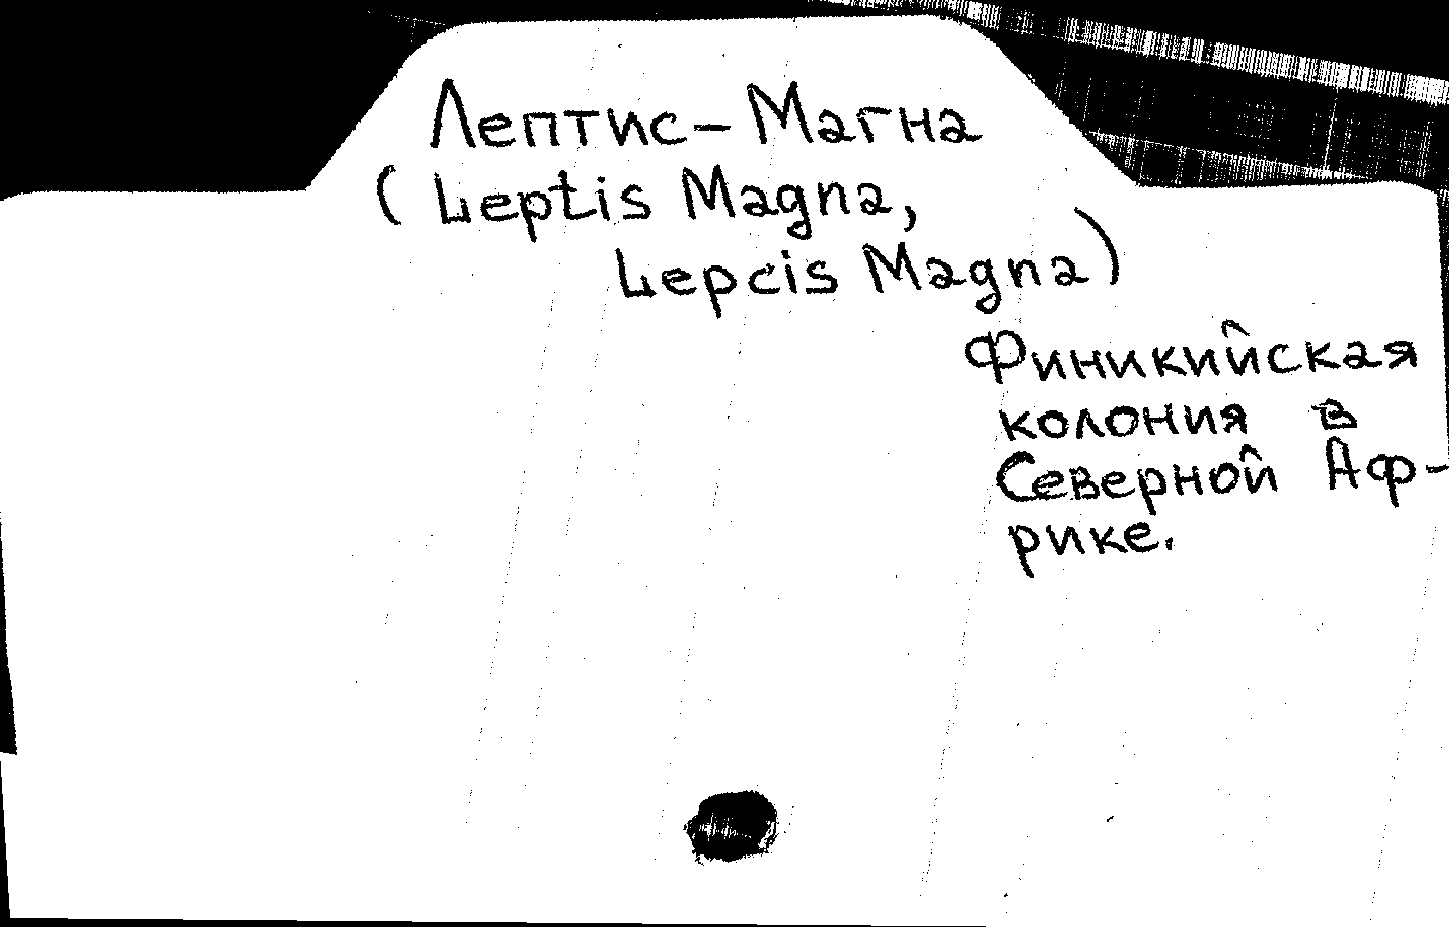 Лептис-Магна
(Leptis Magna,
Lepcis Magna)
Финикийская
колония в
Северной Аф-
рике.